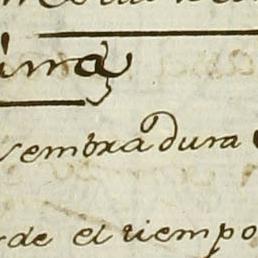 ima
sembradura
rde el tiempo